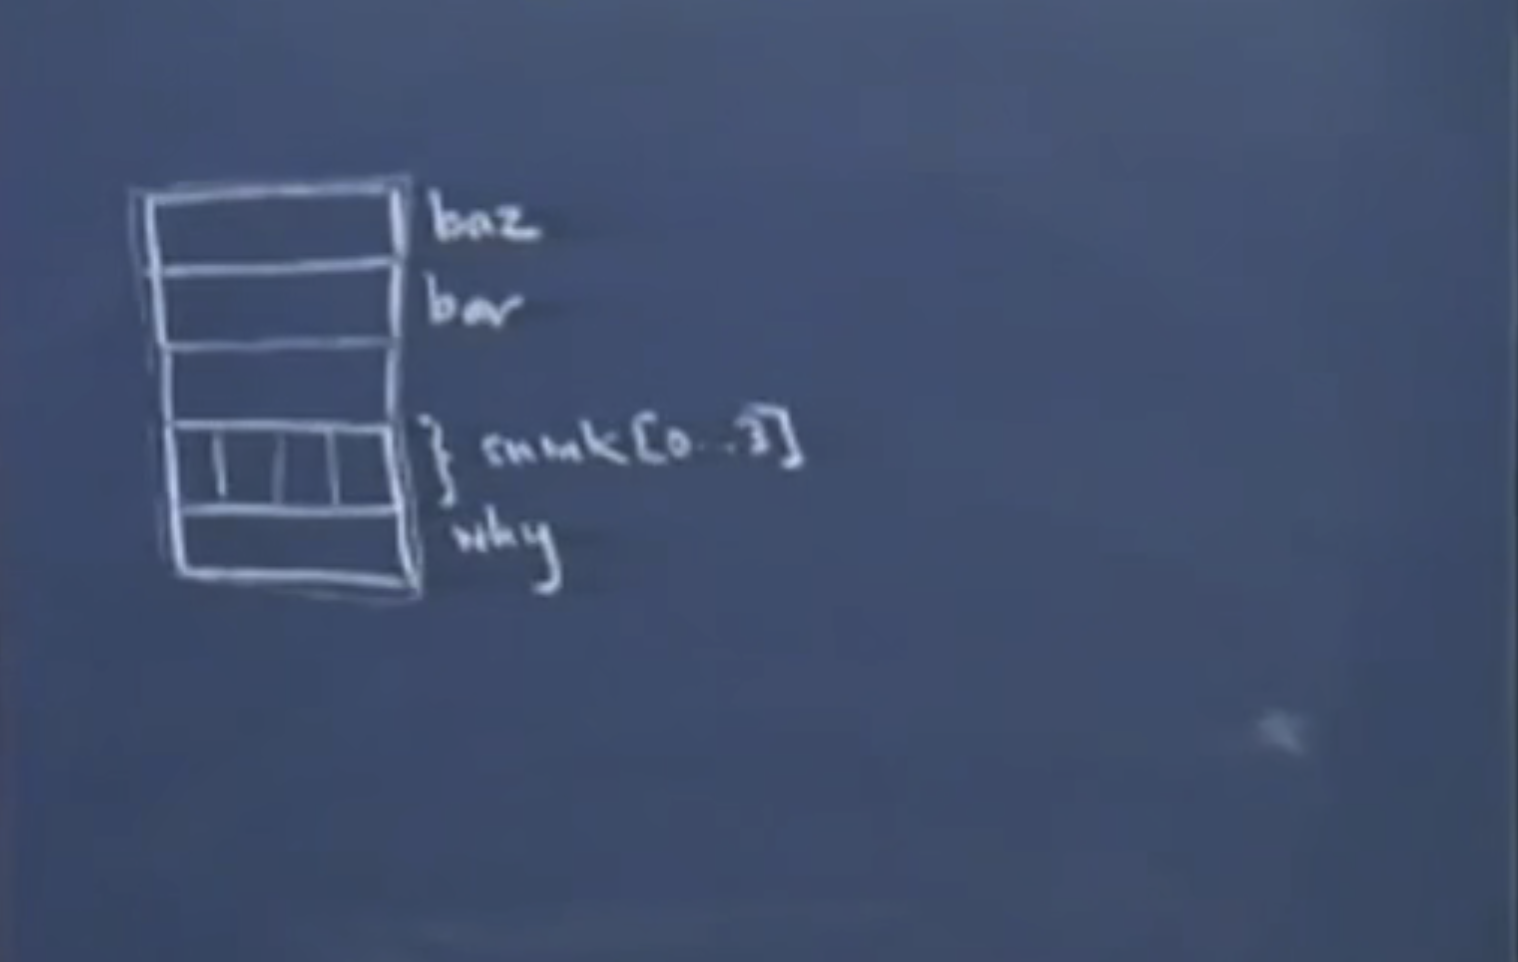 baz
bar
} snink[0...3]
why